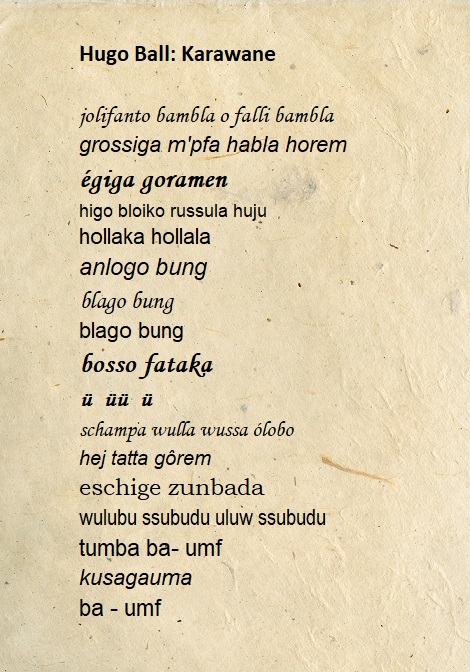 Hugo Ball: Karawane
jolifanto bambla o falli bambla
grossiga m'pfa habla horem
égiga goramen
higo bloiko russula huju
hollaka hollala
anlogo bung
blago bung
blago bung
bosso fataka
ü  üü  ü
schampa wulla wussa ólobo
hej tatta gôrem
eschige zunbada
wulubu ssubudu uluw ssubudu
tumba ba- umf
kusagauma
ba - umf